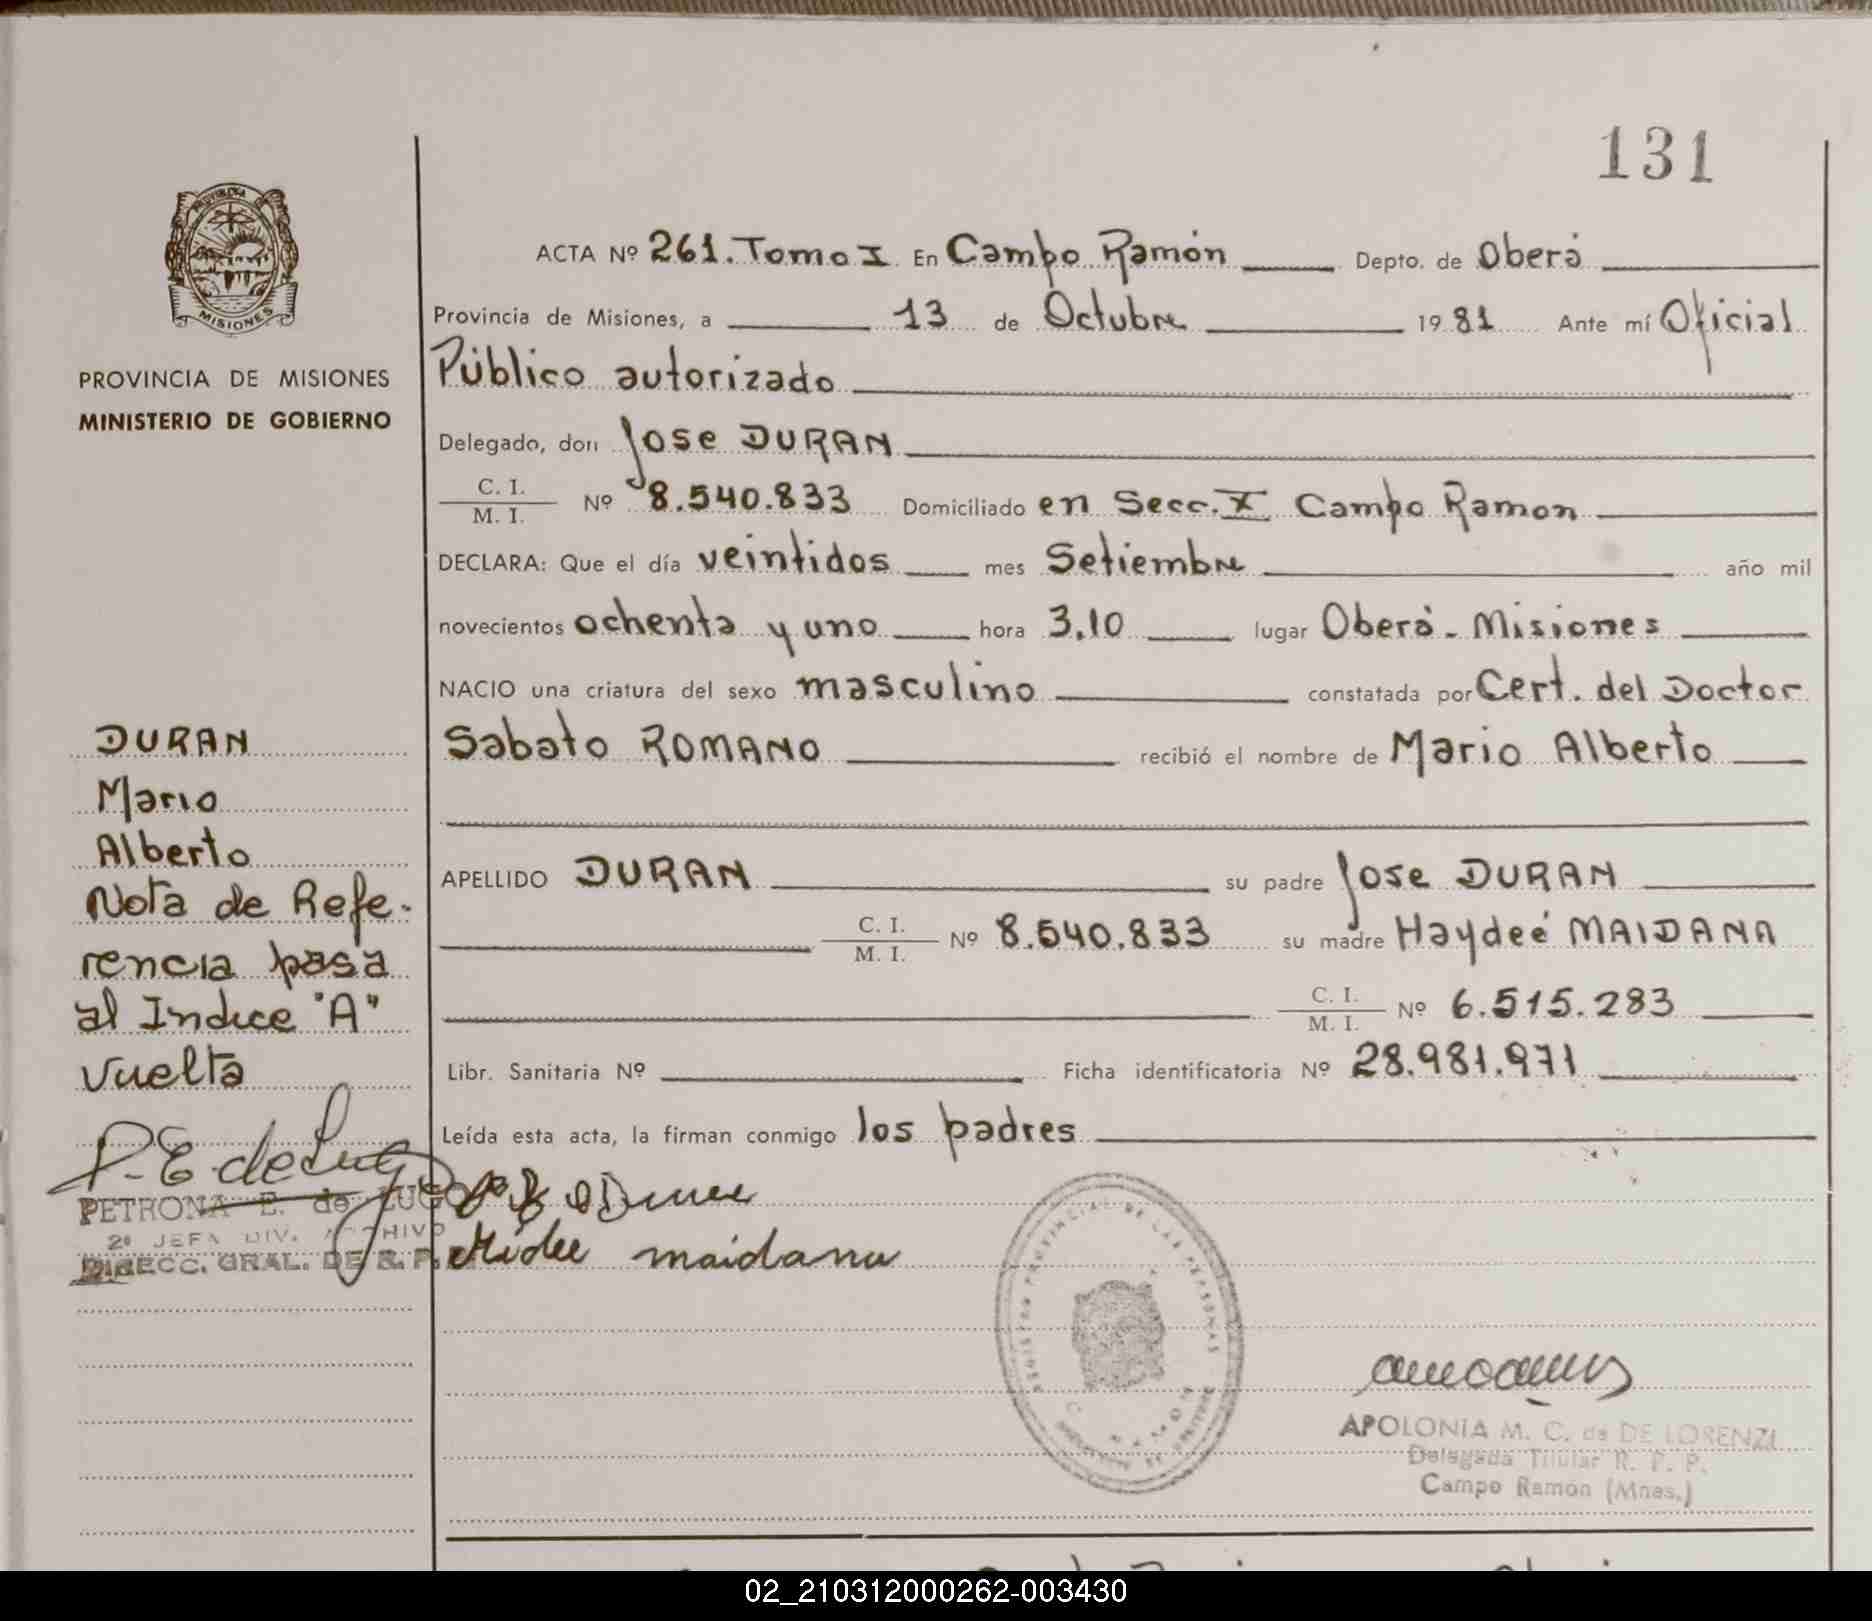 131
PROVINCIA
MISIONES
PROVINCIA DE MISIONES
MINISTERIO DE GOBIERNO
ACTA Nº 261. Tomo I. En Campo Ramón Depto. de Oberá
Provincia de Misiones, a 13 de Octubre 1981 Ante mí Oficial
Público autorizado
Delegado, don Jose DURAN
C. I.
M. I. Nº 8.540.833 Domiciliado en Secc. X Campo Ramon
DECLARA: Que el día veintidos mes Setiembre año mil
novecientos ochenta y uno hora 3,10 lugar Oberá - Misiones
NACIO una criatura del sexo masculino constatada por Cert. del Doctor
Sabato ROMANO recibió el nombre de Mario Alberto
APELLIDO DURAN su padre Jose DURAN
C. I.
M. I. Nº 8.540.833 su madre Haydeé MAIDANA
C. I.
M. I. Nº 6.515.283
Libr. Sanitaria Nº Ficha identificatoria Nº 28.981.971
Leída esta acta, la firman conmigo los padres
DURAN
Mario
Alberto
Nota de Refe-
rencia pasa
al Indice "A"
vuelta
P. E. de Lugo
PETRONA E. de LUGO
2º JEFA DIV. ARCHIVO
DIRECC. GRAL. DE R. P.
maidana
REGISTRO PROVINCIAL DE LAS PERSONAS
APOLONIA M. C. de DE LORENZI
Delegada Titular R. P. P.
Campo Ramón (Mnes.)
02_210312000262-003430